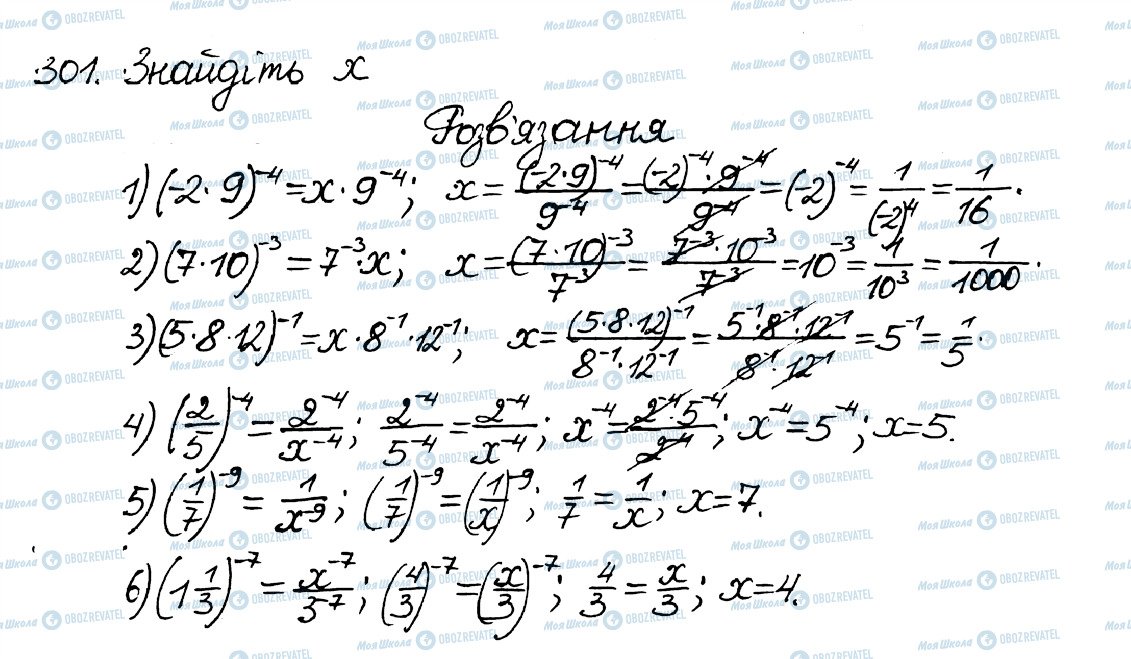 301. Знайдіть x
Розв'язання
1) (-2·9)^{-4} = x·9^{-4}; x = \frac{(-2·9)^{-4}}{9^{-4}} = \frac{(-2)^{-4}·9^{-4}}{9^{-4}} = (-2)^{-4} = \frac{1}{(-2)^4} = \frac{1}{16}.
2) (7·10)^{-3} = 7^{-3}·x; x = \frac{(7·10)^{-3}}{7^{-3}} = \frac{7^{-3}·10^{-3}}{7^{-3}} = 10^{-3} = \frac{1}{10^3} = \frac{1}{1000}.
3) (5·8·12)^{-1} = x·8^{-1}·12^{-1}; x = \frac{(5·8·12)^{-1}}{8^{-1}·12^{-1}} = \frac{5^{-1}·8^{-1}·12^{-1}}{8^{-1}·12^{-1}} = 5^{-1} = \frac{1}{5}.
4) (\frac{2}{5})^{-4} = \frac{2^{-4}}{x^{-4}}; \frac{2^{-4}}{5^{-4}} = \frac{2^{-4}}{x^{-4}}; x^{-4} = \frac{2^{-4}·5^{-4}}{2^{-4}}; x^{-4} = 5^{-4}; x = 5.
5) (\frac{1}{7})^{-9} = \frac{1}{x^{-9}}; (\frac{1}{7})^{-9} = (\frac{1}{x})^{-9}; \frac{1}{7} = \frac{1}{x}; x = 7.
6) (1\frac{1}{3})^{-7} = \frac{x^{-7}}{3^{-7}}; (\frac{4}{3})^{-7} = (\frac{x}{3})^{-7}; \frac{4}{3} = \frac{x}{3}; x = 4.
Моя Школа OBOZREVATEL